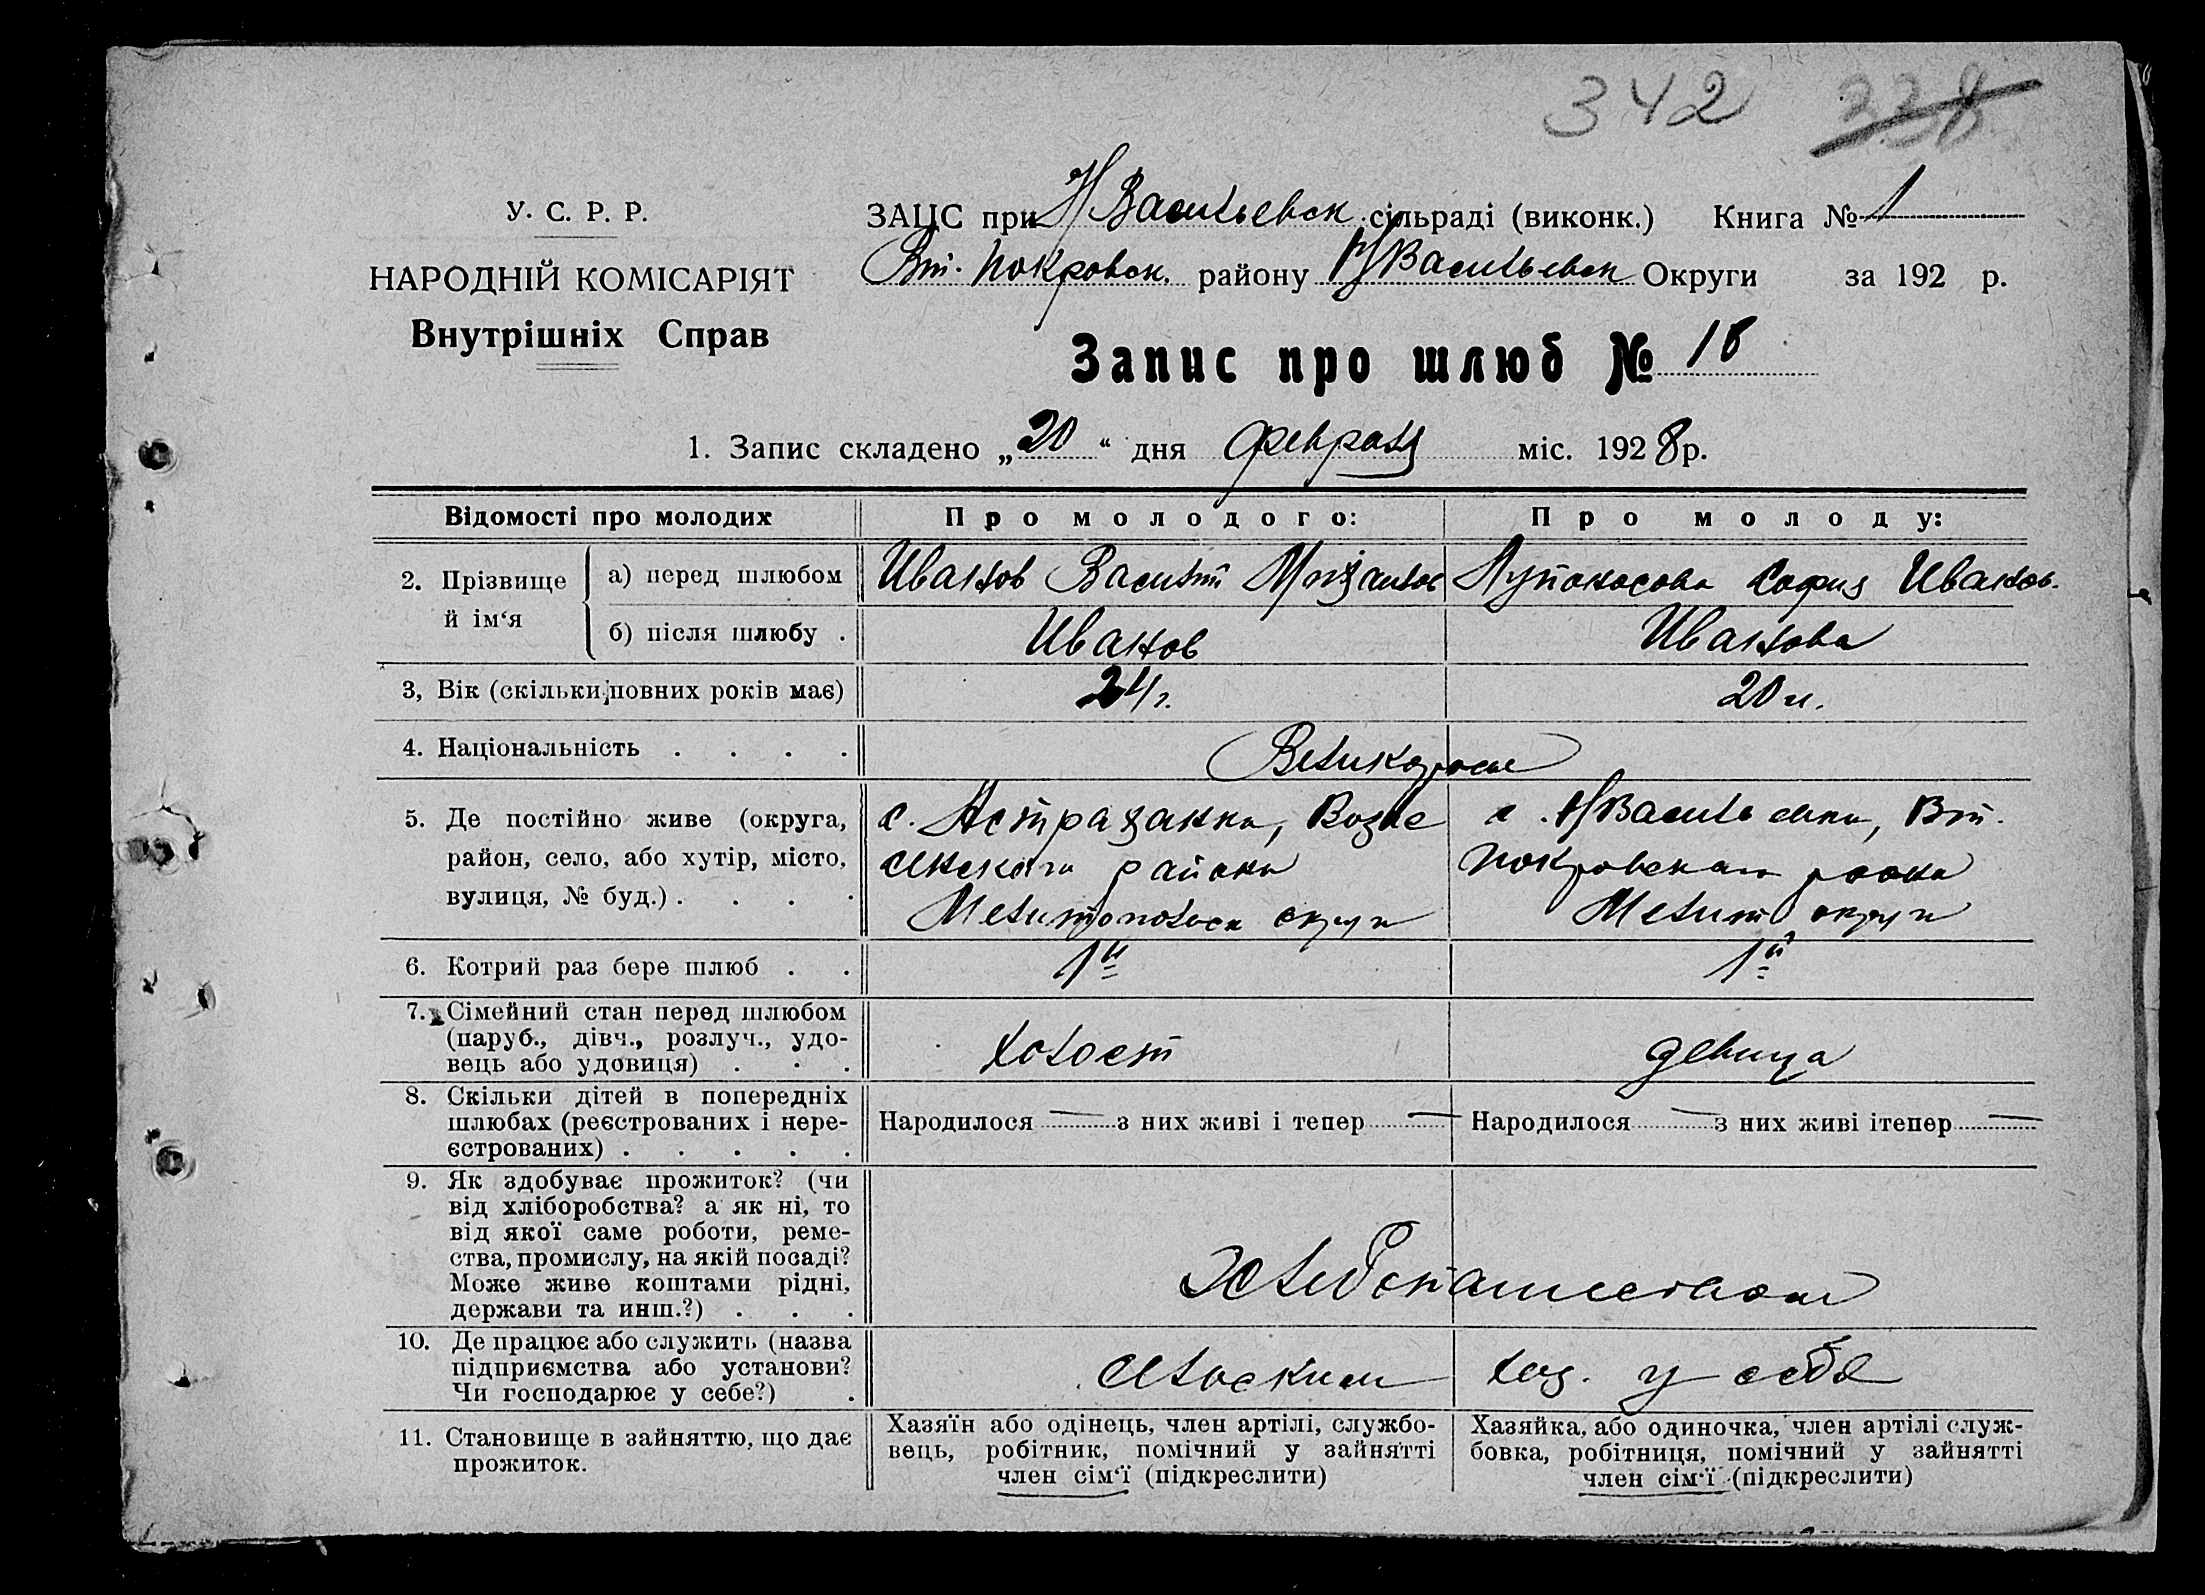 342 338
У. С. Р. Р.
НАРОДНІЙ КОМІСАРІЯТ
Внутрішніх Справ
ЗАЦС при Н Васильевск сільраді (виконк.) Книга № 1
Вт. Покровск. району Н Васильевск Округи за 192 р.
Запис про шлюб № 18
1. Запис складено „20“ дня февраля міс. 1928 р.
Відомості про молодих
Про молодого:
Про молоду:
2. Прізвище й ім‘я
а) перед шлюбом
Иванов Василий Михайлов
София Иванов.
б) після шлюбу .
Иванов
Иванова
3, Вік (скільки повних років має)
24 г.
20 л.
4. Національність . . . .
Великоросы
5. Де постійно живе (округа,
район, село, або хутір, місто,
вулиця, № буд.) . . . .
с. Астраханка, Возне
сенского района
Мелитопольск округи
с. Н Васильевка, Вт.
Покровского района
Мелит округи
6. Котрий раз бере шлюб . .
1й
1й
7. Сімейний стан перед шлюбом
(паруб., дівч., розлуч., удо-
вець або удовиця) . . .
холост
девица
8. Скільки дітей в попередніх
шлюбах (реєстрованих і нере-
єстрованих) . . . . .
Народилося — з них живі і тепер —
Народилося — з них живі ітепер —
9. Як здобуває прожиток? (чи
від хліборобства? а як ні, то
від якої саме роботи, реме-
ства, промислу, на якій посаді?
Може живе коштами рідні,
держави та инш.?) . . .
Хлебопашеством
10. Де працює або служить (назва
підприємства або установи?
Чи господарює у себе?) .
сельским хоз. у себя
11. Становище в зайняттю, що дає
прожиток.
Хазяїн або одінець, член артілі, службо-
вець, робітник, помічний у зайнятті
член сім‘ї (підкреслити)
Хазяйка, або одиночка, член артілі служ-
бовка, робітниця, помічний у зайнятті
член сім‘ї (підкреслити)